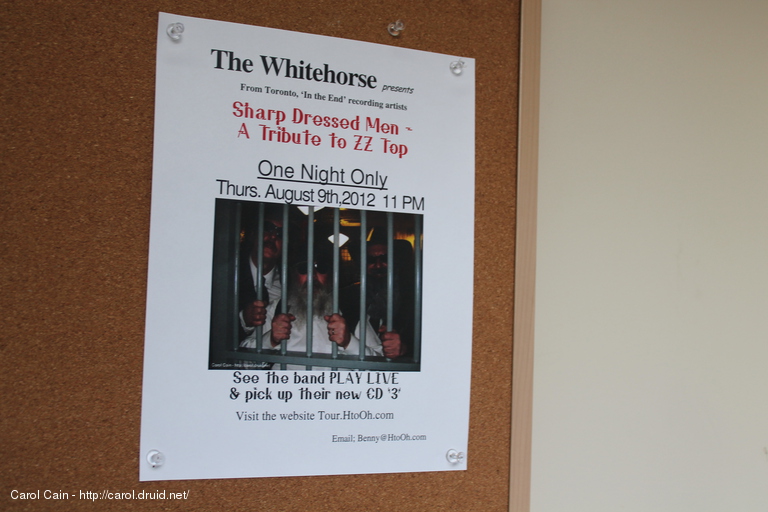 The Whitehorse presents
From Toronto, 'In the End' recording artists
Sharp Dressed Men ~
A Tribute to ZZ Top
One Night Only
Thurs. August 9th,2012 11 PM
See the band PLAY LIVE
& pick up their new CD '3'
Visit the website Tour.HtoOh.com
Email: Benny@HtoOh.com
Carol Cain - http://carol.druid.net/